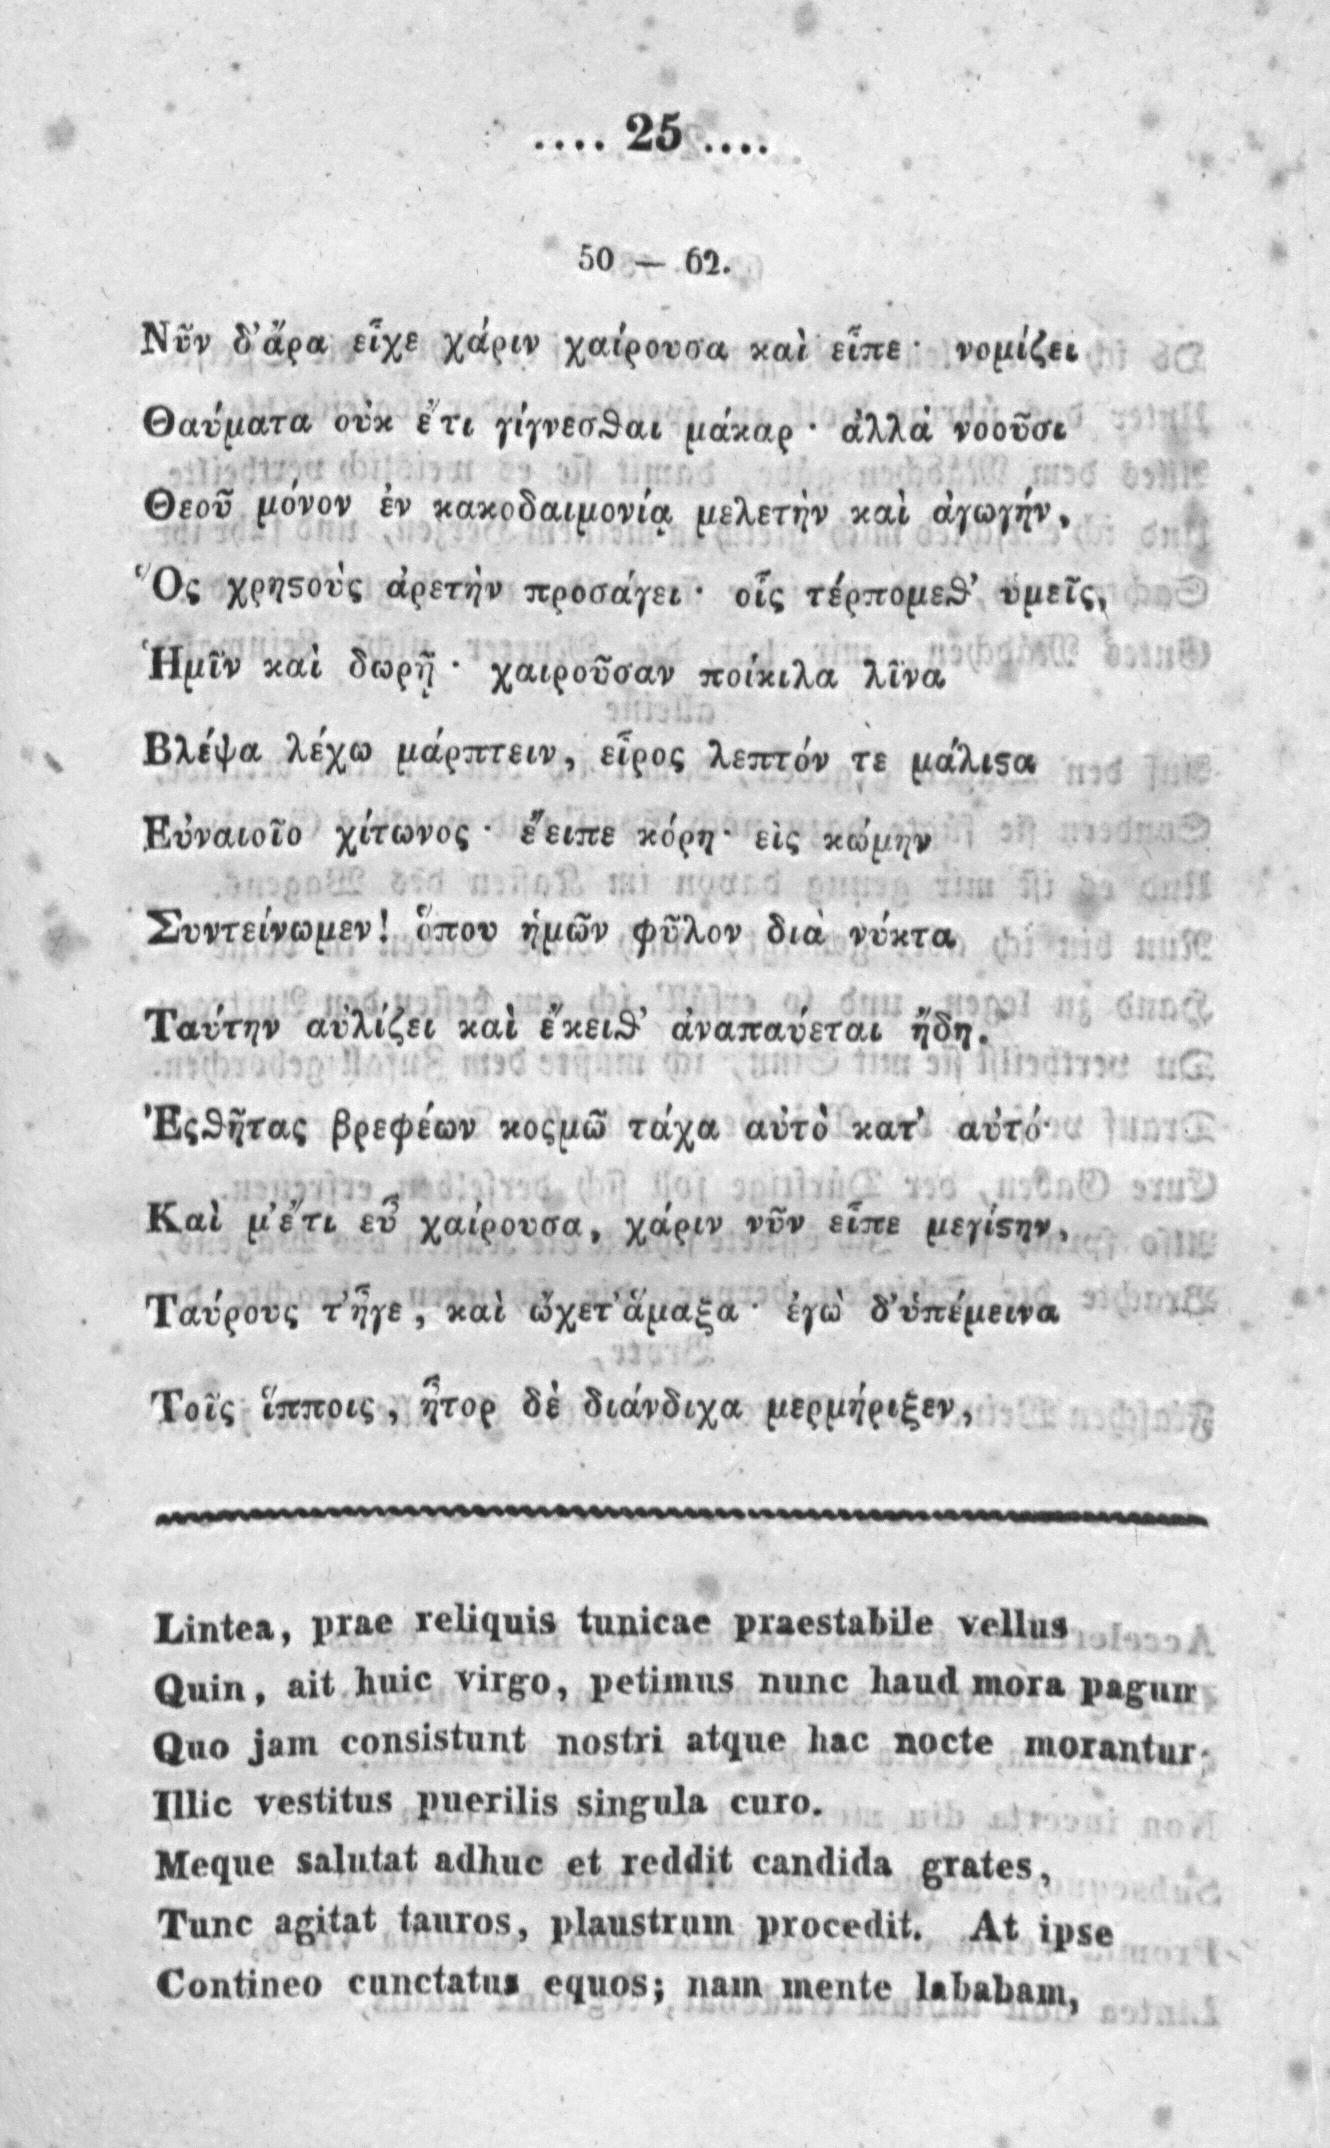 .... 25 ....
50 — 62.
Νῦν δ'ἄρα εἶχε χάριν χαίρουσα καὶ εἶπε· νομίζει
Θαύματα οὐκ ἔτι γίγνεσϑαι μάκαρ· ἀλλὰ νοοῦσι
Θεοῦ μόνον ἐν κακοδαιμονίᾳ μελετὴν καὶ ἀγωγήν,
Ὅς χρηϛοὺς ἀρετὴν προσάγει· οἷς τέρπομεϑ' ὑμεῖς,
Ἡμῖν καὶ δωρῇ· χαιροῦσαν ποίκιλα λῖνα
Βλέψα λέχω μάρπτειν, εἶρος λεπτόν τε μάλιϛα
Εὐναιοῖο χίτωνος· ἔειπε κόρη· εἰς κώμην
Συντείνωμεν! ὅπου ἡμῶν φῦλον διὰ νύκτα
Ταύτην αὐλίζει καὶ ἔκειϑ' ἀναπαύεται ἤδη.
Ἐςϑῆτας βρεφέων κοςμῶ τάχα αὐτὸ κατ' αὐτό·
Καὶ μ'ἔτι εὖ χαίρουσα, χάριν νῦν εἶπε μεγίϛην,
Ταύρους τ'ἦγε, καὶ ᾤχετ'ἅμαξα· ἐγὼ δ'ὑπέμεινα
Τοῖς ἵπποις, ἦτορ δὲ διάνδιχα μερμήριξεν,
Lintea, prae reliquis tunicae praestabile vellus
Quin, ait huic virgo, petimus nunc haud mora pagum
Quo jam consistunt nostri atque hac nocte morantur;
Illic vestitus puerilis singula curo.
Meque salutat adhuc et reddit candida grates,
Tunc agitat tauros, plaustrum procedit. At ipse
Contineo cunctatus equos; nam mente lababam,